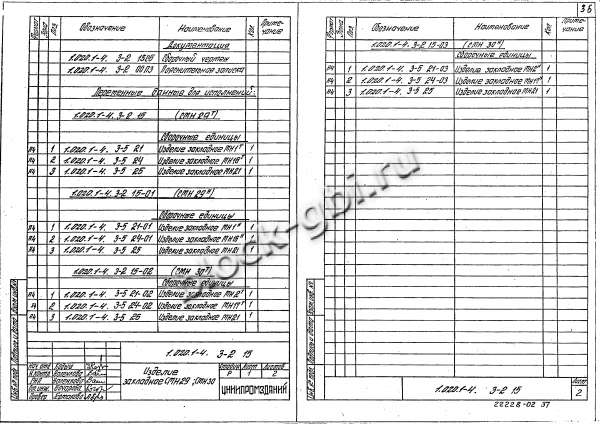 36
Формат Зона Поз Обозначение Наименование Кол. Примечание
Документация
1.020.1-4. 3-2 15СБ Сборочный чертеж
1.020.1-4. 3-2 00ПЗ Пояснительная записка
Переменные данные для исполнений:
1.020.1-4. 3-2 15 (СМН 29
Сборочные единицы
А4 1 1.020.1-4. 3-5 21 Изделие закладное МН1 1
А4 2 1.020.1-4. 3-5 24 Изделие закладное 1
А4 3 1.020.1-4. 3-5 25 Изделие закладное МН21 1
1.020.1-4. 3-2 15-01 (СМН 29
Сборочные единицы
А4 1 1.020.1-4. 3-5 21-01 Изделие закладное МН1 1
А4 2 1.020.1-4. 3-5 24-01 Изделие закладное 1
А4 3 1.020.1-4. 3-5 25 Изделие закладное МН21 1
1.020.1-4. 3-2 15-02 (СМН 30
Сборочные единицы
А4 1 1.020.1-4. 3-5 21-02 Изделие закладное МН2 1
А4 2 1.020.1-4. 3-5 24-02 Изделие закладное 1
А4 3 1.020.1-4. 3-5 25 Изделие закладное МН21 1
1.020.1-4. 3-2 15
Изделие
закладное СМН29, СМН30
Стадия Лист Листов
Р 1 2
ЦНИИПРОМЗДАНИЙ
Формат Зона Поз Обозначение Наименование Кол Примечание
1.020.1-4. 3-2 15-03 (СМН 30
Сборочные единицы
А4 1 1.020.1-4. 3-5 21-03 Изделие закладное МН2 1
А4 2 1.020.1-4. 3-5 24-03 Изделие закладное 1
А4 3 1.020.1-4. 3-5 25 Изделие закладное МН21 1
1.020.1-4. 3-2 15
Лист
2
22228-02 37
stock-gbi.ru